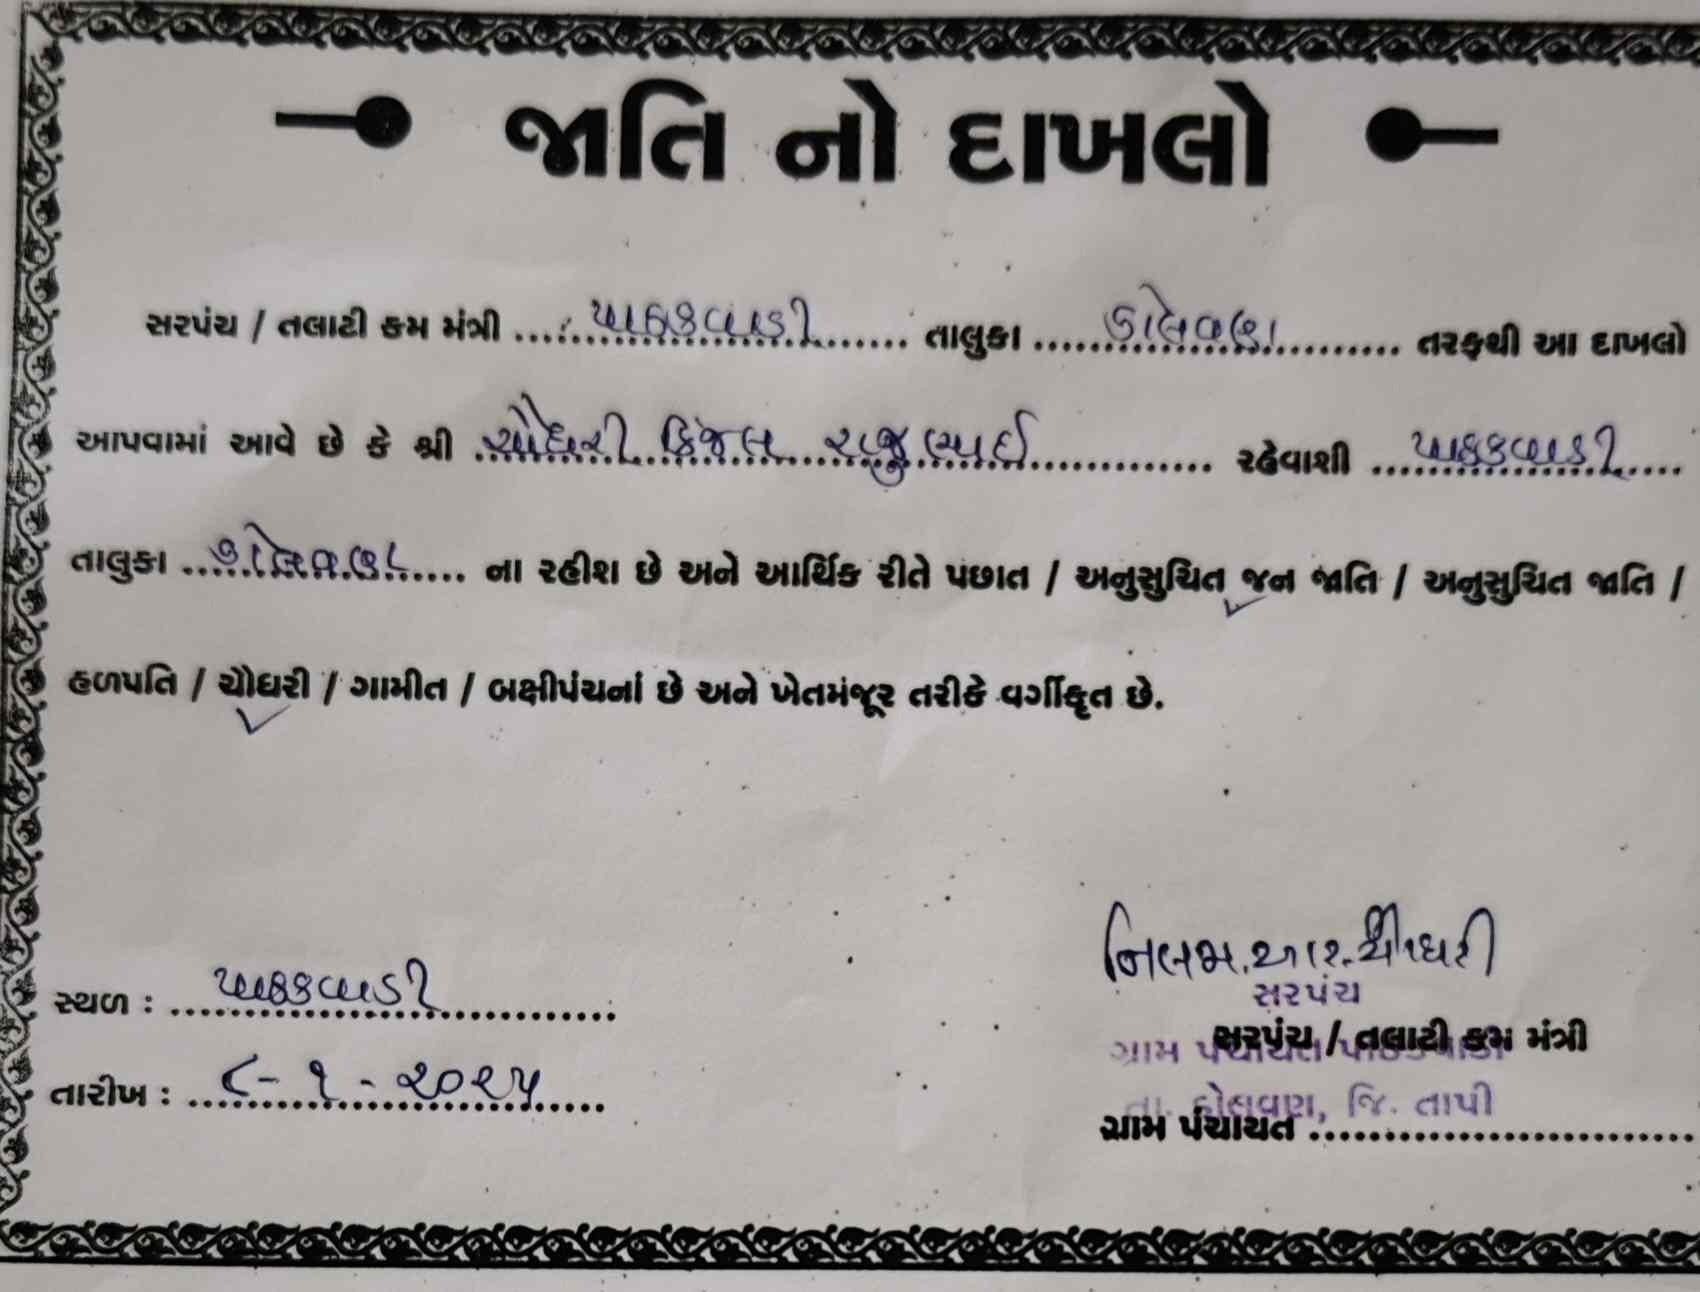 જાતિ નો દાખલો
સરપંચ / તલાટી કમ મંત્રી ............ પાઠકવાડી ............ તાલુકા ............ ડોલવણ ............ તરફથી આ દાખલો
આપવામાં આવે છે કે શ્રી ચૌધરી કિંજલ રાજુભાઈ ............ રહેવાશી પાઠકવાડી ......
તાલુકા ...... ડોલવણ ...... ના રહીશ છે અને આર્થિક રીતે પછાત / અનુસુચિત જન જાતિ / અનુસુચિત જાતિ /
હળપતિ / ચૌધરી / ગામીત / બક્ષીપંચનાં છે અને ખેતમંજૂર તરીકે વર્ગીકૃત છે.
નિલમ.આર.ચૌધરી
સ્થળ : પાઠકવાડી ............
સરપંચ
સરપંચ / તલાટી કમ મંત્રી
ગ્રામ પંચાયત પાઠકવાડી
તારીખ : ૮-૧-૨૦૨૫
તા. ડોલવણ, જિ. તાપી
ગ્રામ પંચાયત ............